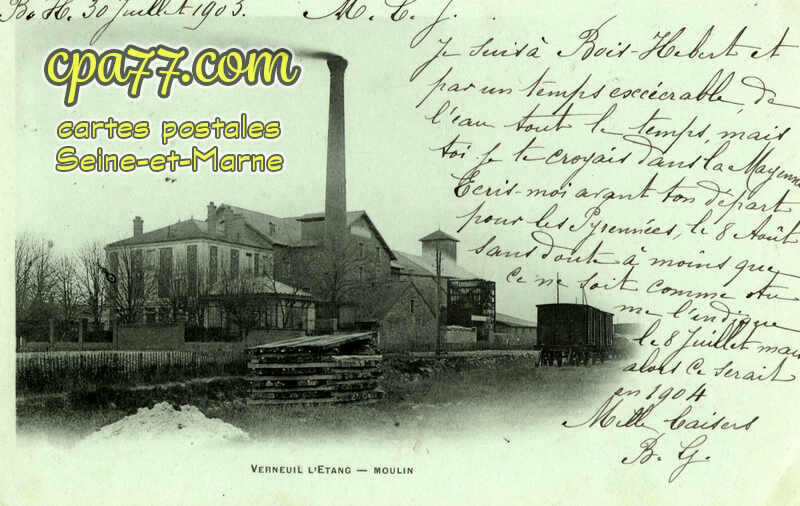 B. H. 30 Juillet 1903. M. C. J.
cpa77.com
cartes postales
Seine-et-Marne
Je suis à Bois-Hebert et
par un temps exécrable, de
l'eau tout le temps, mais
toi je te croyais dans la Mayenne
Ecris-moi avant ton départ
pour les Pyrennées, le 8 Août
sans doute à moins que
ce ne soit comme tu
me l'indique
le 8 Juillet mais
alors ce serait
en 1904
Mille baisers
B. G.
VERNEUIL L'ETANG — MOULIN